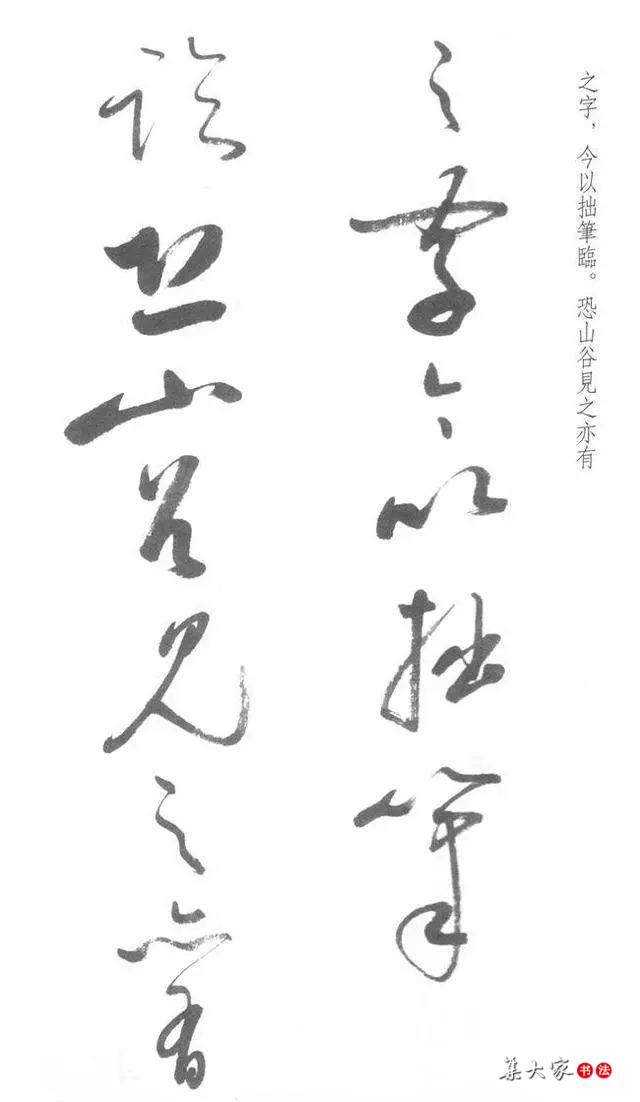 之字，今以拙筆臨。恐山谷見之亦有
之字今以拙筆
臨恐山谷見之亦有
集大家书法